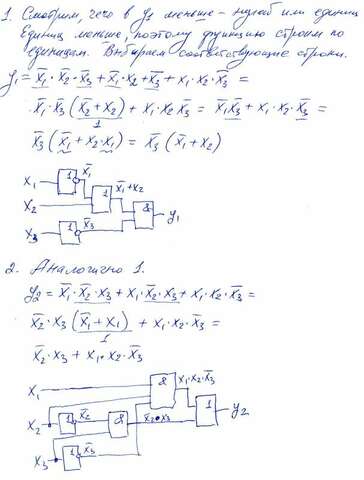 1. Смотрим, чего в y₁ меньше – нулей или единиц
Единиц меньше, поэтому функцию строим по
единицам. Выбираем соответствующие строки.
y₁ = x̅₁·x̅₂·x̅₃ + x̅₁·x₂·x̅₃ + x₁·x₂·x̅₃ =
x̅₁·x̅₃(x̅₂+x₂) + x₁·x₂·x̅₃ = x̅₁x̅₃ + x₁·x₂·x̅₃ =
1
x̅₃(x̅₁+x₂·x₁) = x̅₃(x̅₁+x₂)
x₁ 1 x̅₁
x₂ 1 x̅₁+x₂
x₃ 1 x̅₃ & y₁
2. Аналогично 1.
y₂ = x̅₁·x̅₂·x₃ + x₁·x̅₂·x₃ + x₁·x₂·x̅₃ =
x̅₂·x₃(x̅₁+x₁) + x₁·x₂·x̅₃ =
1
x̅₂·x₃ + x₁·x₂·x̅₃
x₁ & x₁·x₂·x̅₃
x₂ 1 x̅₂ & x̅₂·x₃ 1 y₂
x₃ 1 x̅₃